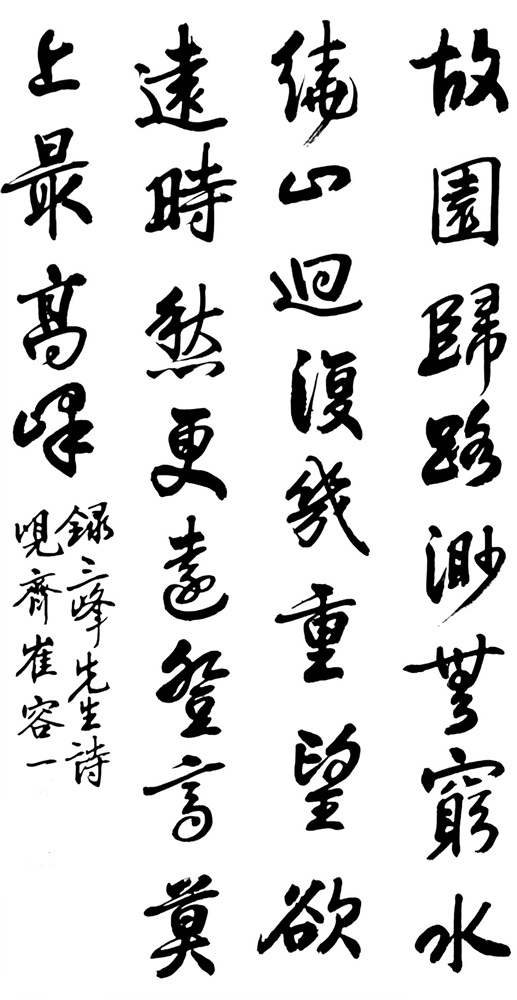 故園歸路渺無窮水
繞山迴復幾重望欲
遠時愁更遠登高莫
上最高峰
錄三峰先生詩
齊崔容一